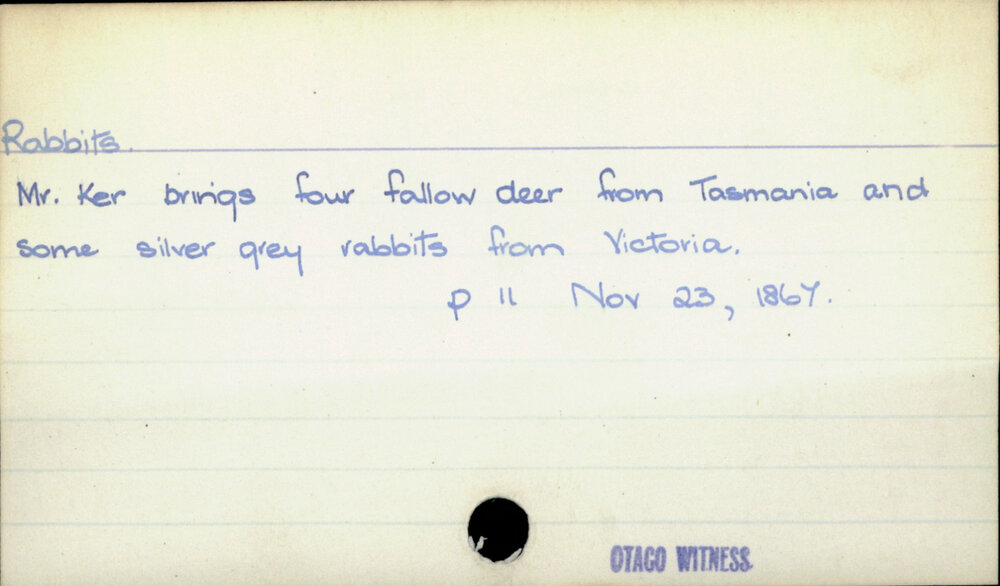 Rabbits.
Mr. Ker brings four fallow deer from Tasmania and
some silver grey rabbits from Victoria.
p 11 Nov 23, 1867.
OTAGO WITNESS